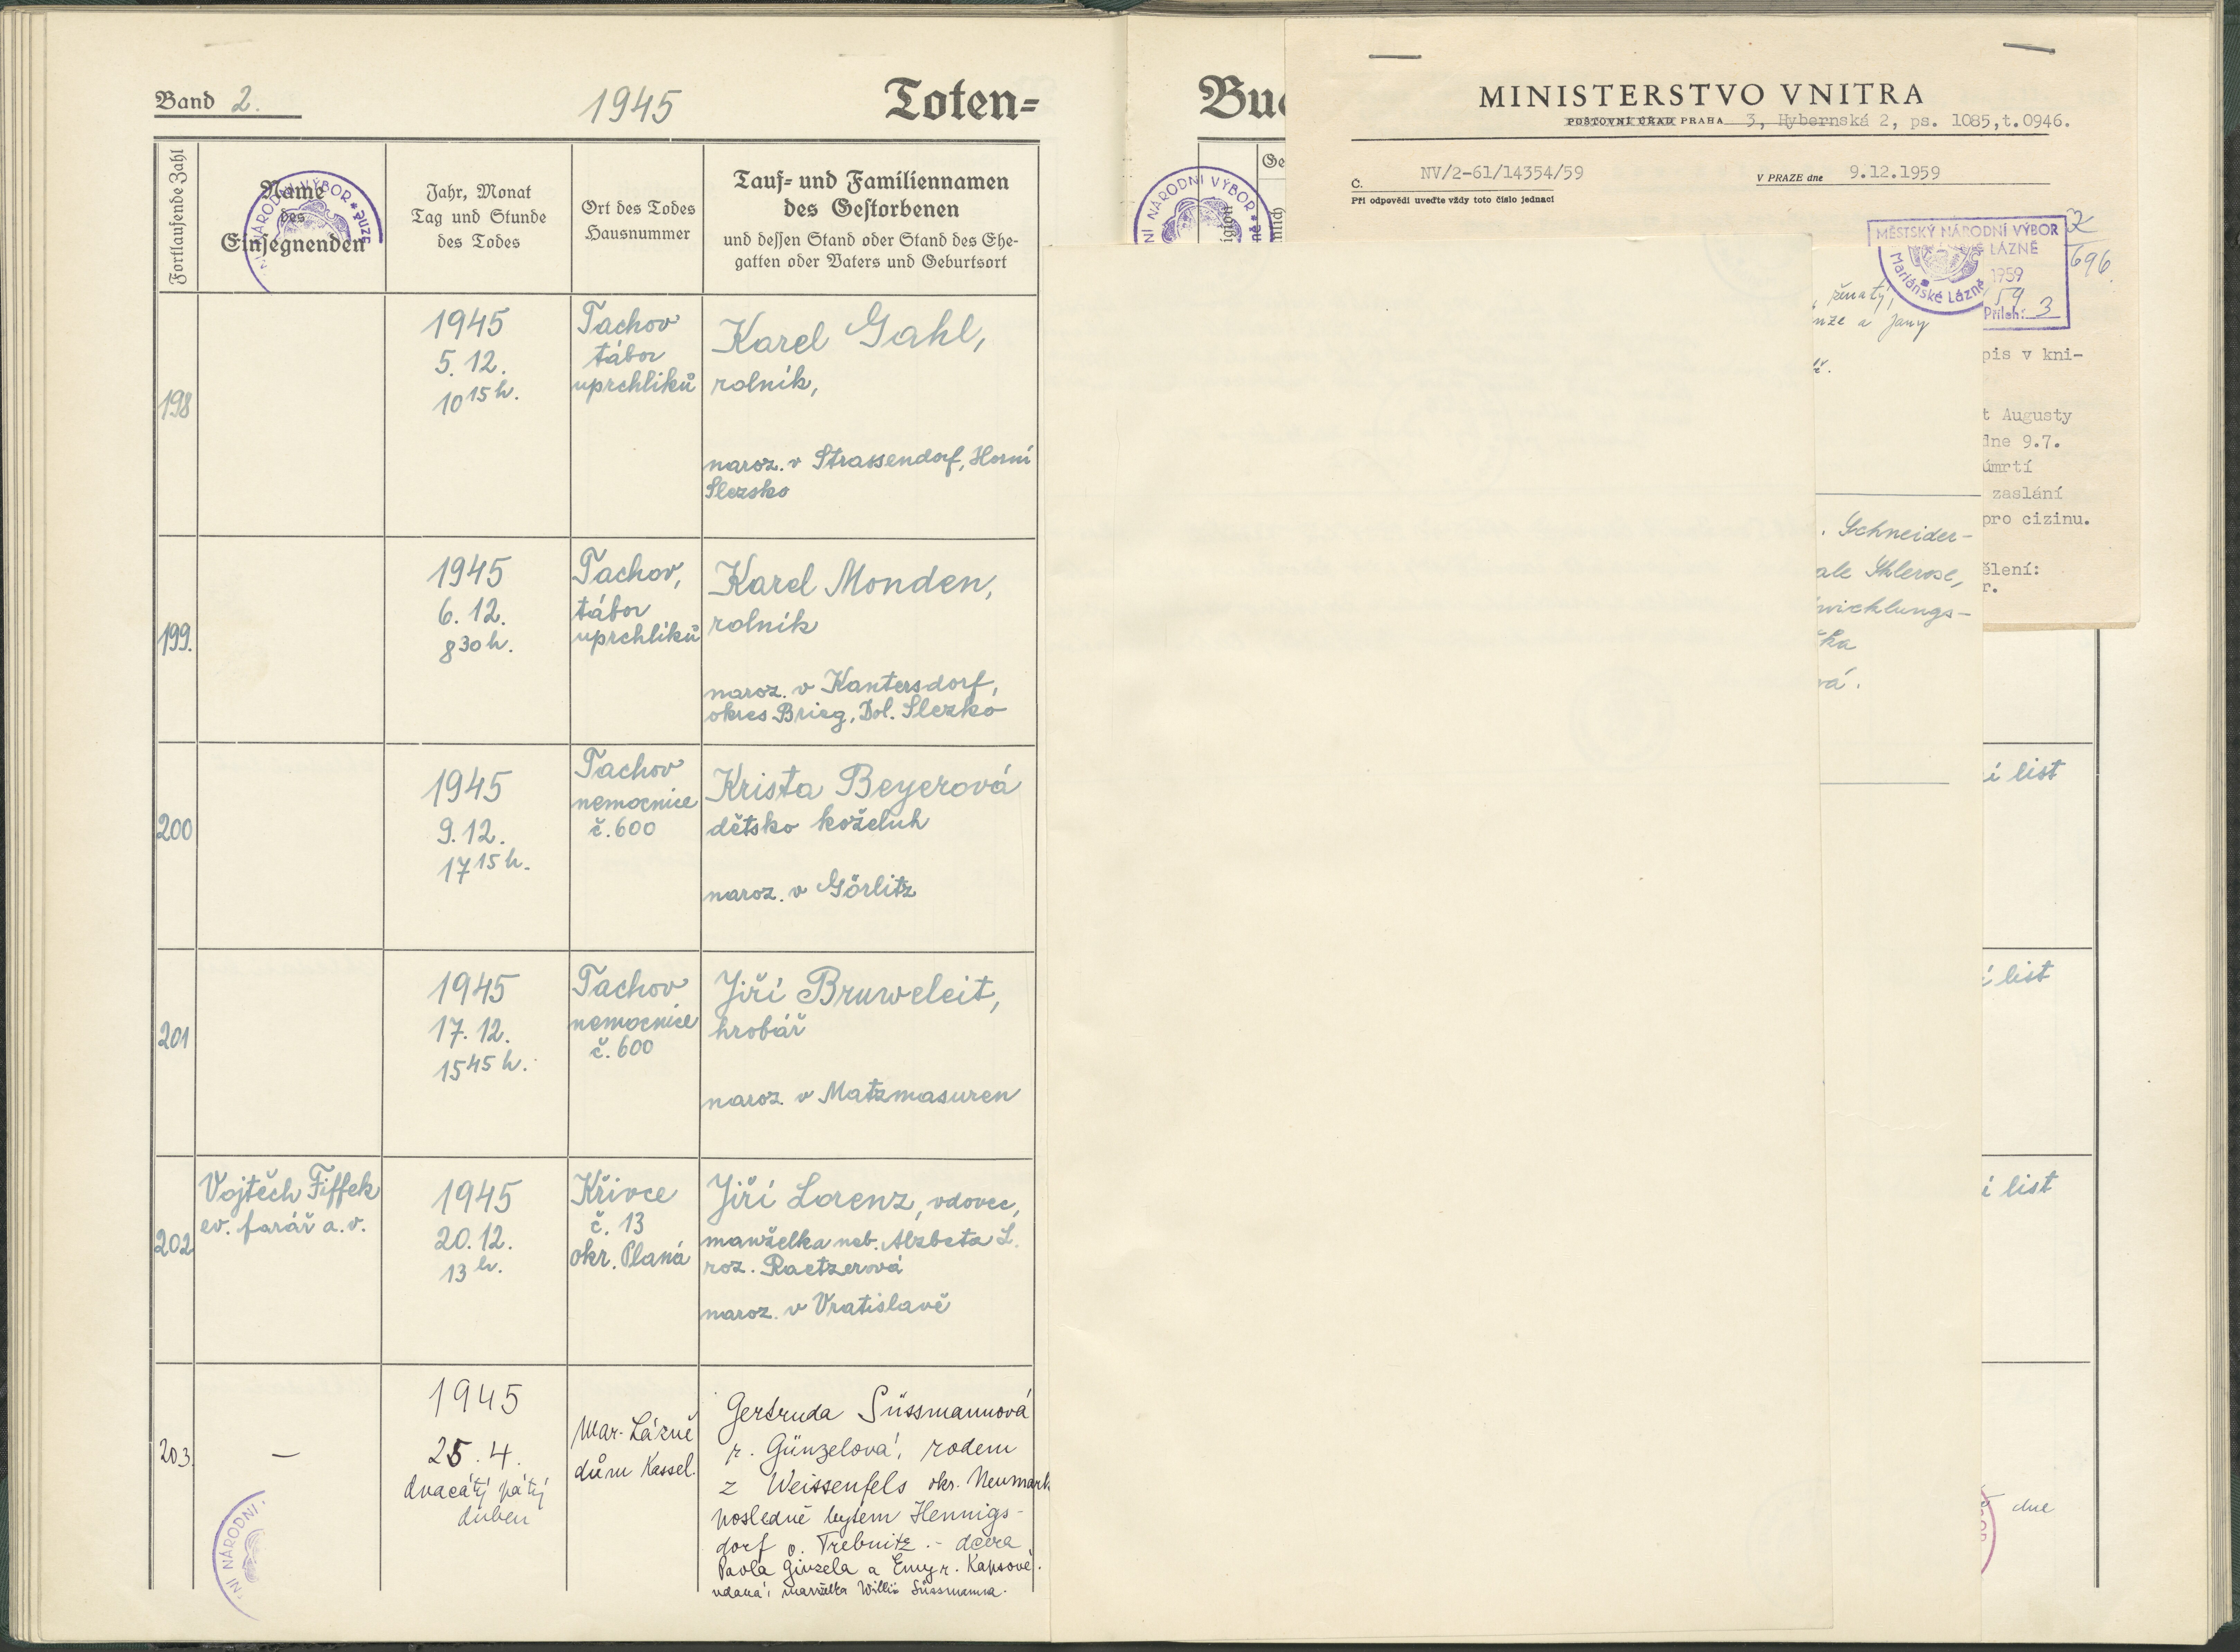 Band 2.
1945
Toten=
Fortlaufende Zahl
Name
des
Einsegnenden
Jahr, Monat
Tag und Stunde
des Todes
Ort des Todes
Hausnummer
Tauf- und Familiennamen
des Gestorbenen
und dessen Stand oder Stand des Ehe-
gatten oder Vaters und Geburtsort
198
1945
5. 12.
10 15 h.
Tachov
tábor
uprchlíků
Karel Gahl,
rolník,
naroz. v Strassendorf, Horní
Slezsko
199.
1945
6. 12.
8 30 h.
Tachov,
tábor
uprchlíků
Karel Monden,
rolník
naroz. v Kantersdorf,
okres Brieg, Dol. Slezko
200
1945
9. 12.
17 15 h.
Tachov
nemocnice
č. 600
Krista Beyerová
dětsko koželuh
naroz. v Görlitz
201
1945
17. 12.
15 45 h.
Tachov
nemocnice
č. 600
Jiří Bruweleit,
hrobář
naroz. v Matzmasuren
202
Vojtěch Fiffek
ev. farář a. v.
1945
20. 12.
13 h.
Křivce
č. 13
okr. Planá
Jiří Lorenz, vdovec,
manželka neb. Alzbeta L.
roz. Raetzerová
naroz. v Vratislavě
203.
—
1945
25. 4.
dvacátý pátý
duben
Mar. Lázně
dům Kassel.
Gertruda Süssmannová
r. Günzelová, rodem
z Weissenfels okr. Neumark
posledně bytem Hennigs-
dorf o. Trebnitz. - dcera
Pavla Günzela a Emy r. Kapsové.
vdaná, manželka Willi Süssmanna.
NÍ NÁRODNÍ
NÁRODNÍ VÝBOR
Buc
NÍ NÁRODNÍ VÝBOR
Ge
MINISTERSTVO VNITRA
POŠTOVNÍ ÚŘAD PRAHA 3, Hybernská 2, ps. 1085,t.0946.
Č. NV/2-61/14354/59
V PRAZE dne 9.12.1959
Při odpovědi uveďte vždy toto číslo jednací
MĚSTSKÝ NÁRODNÍ VÝBOR
LÁZNĚ
Mariánské Lázně
1959
59
Příloh: 3
696
, ženatý,
nze a Jany
pis v kni-
t Augusty
dne 9.7.
úmrtí
zaslání
pro cizinu.
ělení:
r.
. Schneider-
ale Sklerose,
wicklungs-
ka
vá.
í list
í list
í list
dne